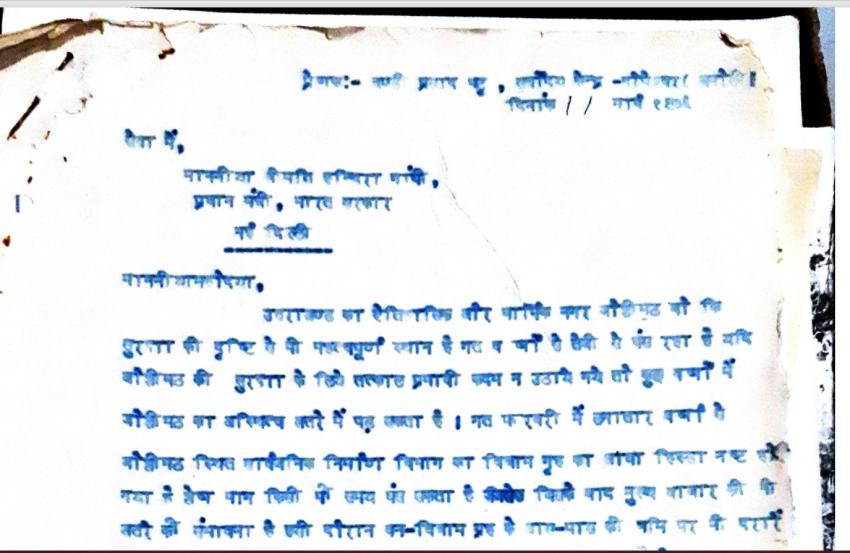 प्रेषक:- चण्डी प्रसाद भट्ट, सर्वोदय केन्द्र -गोपेश्वर( चमोली)
दिनांक 11 मार्च
सेवा में,
माननीया श्रीमति इन्दिरा गांधी,
प्रधान मंत्री, भारत सरकार
नई दिल्ली
माननीयामहोदया,
उत्तराखण्ड का ऐतिहासिक और धार्मिक नगर जोशीमठ जो कि
सुरक्षा की दृष्टि से भी महत्वपूर्ण स्थान है गत वर्षों से तेजी से धंस रहा है यदि
जोशीमठ की सुरक्षा के लिये तत्काल प्रभावी कदम न उठाये गये तो कुछ वर्षों में
जोशीमठ का अस्तित्व खतरे में पड़ सकता है। गत फरवरी में लगातार वर्षा से
जोशीमठ स्थित सार्वजनिक निर्माण विभाग का विश्राम गृह का आधा हिस्सा नष्ट हो
गया है शेष भाग किसी भी समय धंस सकता है जिसके बाद मुख्य बाजार की भी
खतरे की संभावना है इसी दौरान वन-विश्राम गृह के आस-पास की भूमि पर भी दरारें